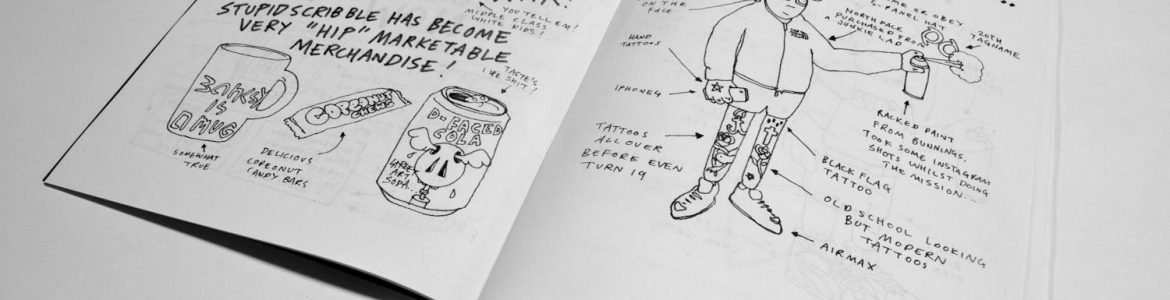 YOU TELL EM!
MIDDLE CLASS
WHITE KIDS!
STUPIDSCRIBBLE HAS BECOME
VERY "HIP" MARKETABLE
MERCHANDISE!
BANKSY
IS
A MUG
SOMEWHAT
TRUE
COPEONUT
CHEWS
DELICIOUS
COPEONUT
CANDY BARS
TASTES
LIKE SHIT!
D-FACED
COLA
STREET
ART
SODA...
ON THE
FACE
HAND
TATTOOS
IPHONE4
TATTOOS
ALL OVER
BEFORE EVEN
TURN 19
OR OBEY
5-PANEL HAT
NORTH FACE
PURCHASED FROM
A JUNKIE LAD
20TH
TAGNAME
RACKED PAINT
FROM BUNNINGS,
TOOK SOME INSTAGRAM
SHOTS WHILST DOING
THE MISSION...
BLACK FLAG
TATTOO
OLD SCHOOL LOOKING
BUT MODERN
TATTOOS
AIRMAX